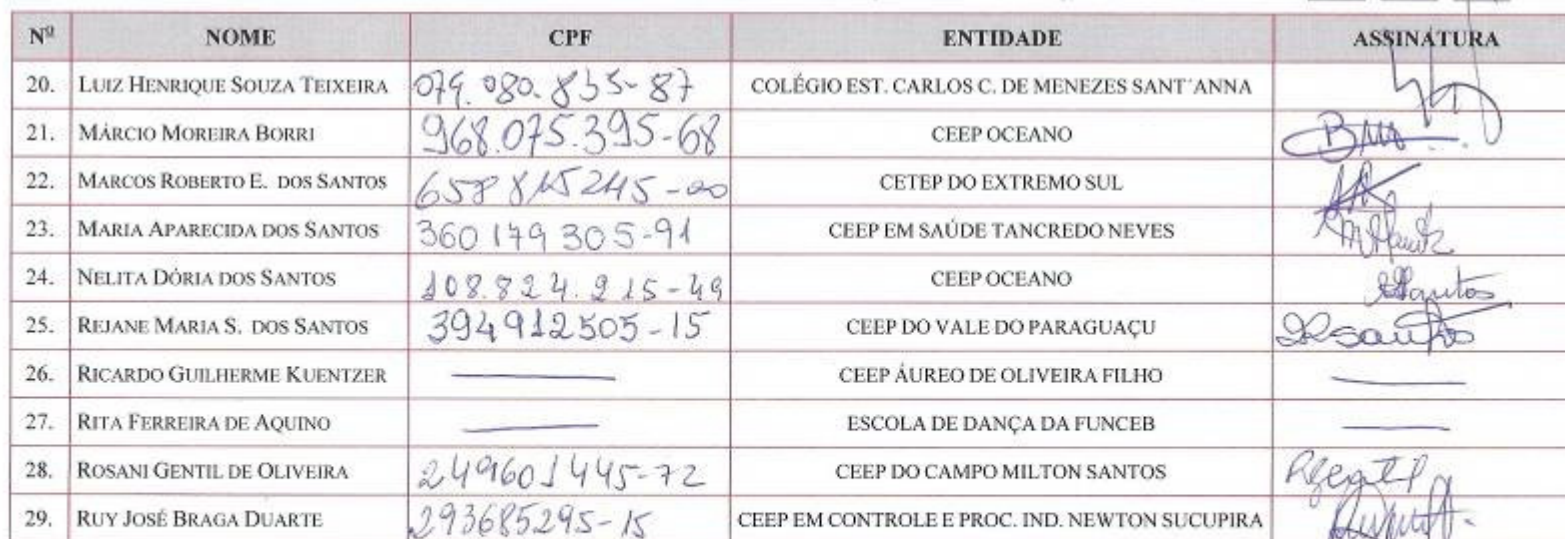 Nº NOME CPF ENTIDADE ASSINATURA
20. LUIZ HENRIQUE SOUZA TEIXEIRA 079.080.835-87 COLÉGIO EST. CARLOS C. DE MENEZES SANT´ANNA
21. MÁRCIO MOREIRA BORRI 968.075.395-68 CEEP OCEANO
22. MARCOS ROBERTO E. DOS SANTOS CETEP DO EXTREMO SUL
23. MARIA APARECIDA DOS SANTOS 360 179 305-91 CEEP EM SAÚDE TANCREDO NEVES
24. NELITA DÓRIA DOS SANTOS 108.824.215-49 CEEP OCEANO
25. REJANE MARIA S. DOS SANTOS 394912505-15 CEEP DO VALE DO PARAGUAÇU
26. RICARDO GUILHERME KUENTZER CEEP ÁUREO DE OLIVEIRA FILHO
27. RITA FERREIRA DE AQUINO ESCOLA DE DANÇA DA FUNCEB
28. ROSANI GENTIL DE OLIVEIRA 249601445-72 CEEP DO CAMPO MILTON SANTOS
29. RUY JOSÉ BRAGA DUARTE 293685295-15 CEEP EM CONTROLE E PROC. IND. NEWTON SUCUPIRA